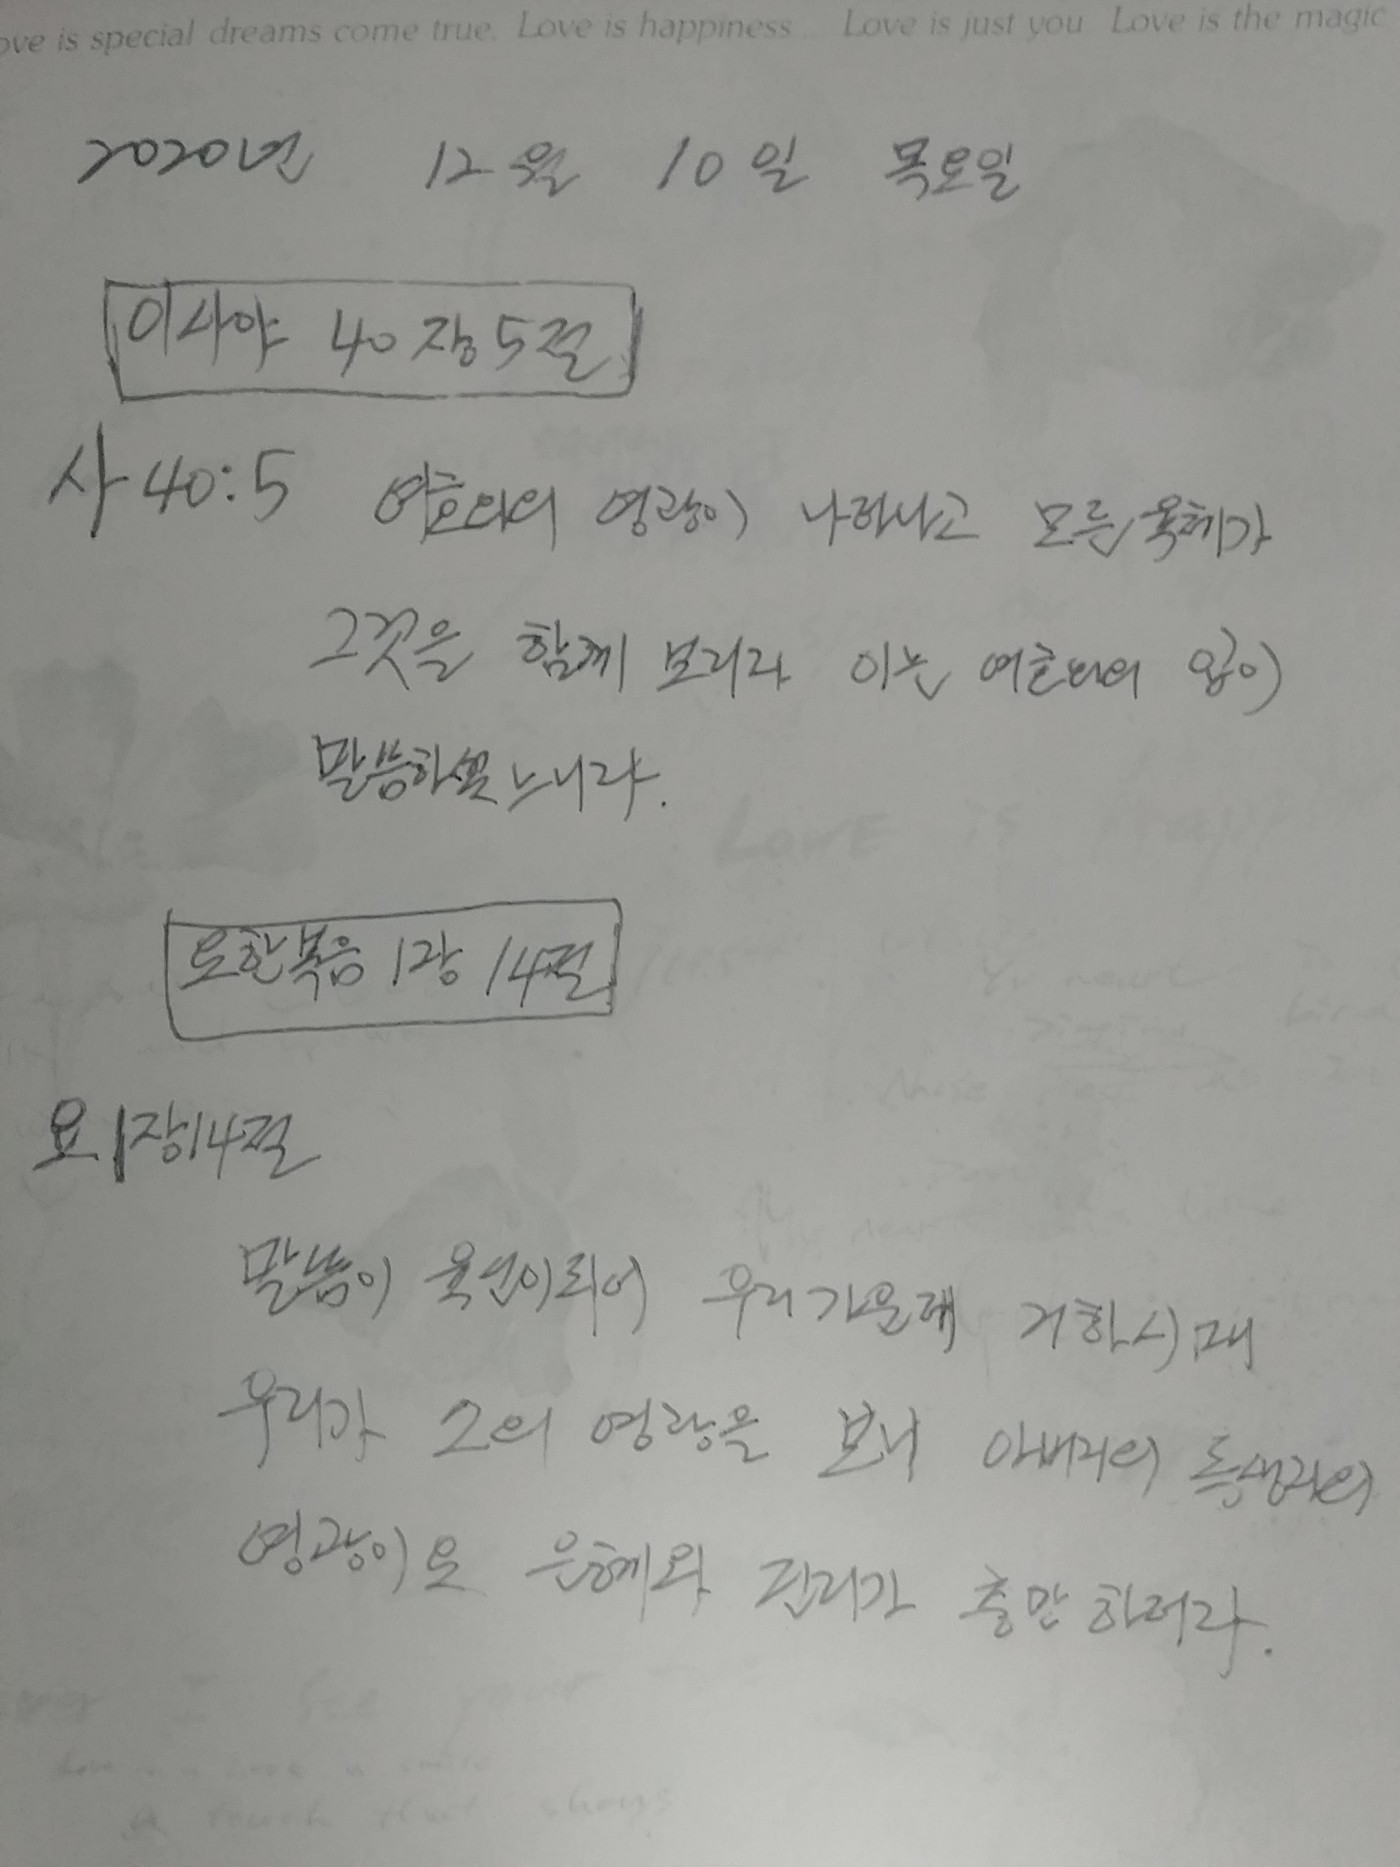 ove is special dreams come true. Love is happiness... Love is just you Love is the magic
2020년 12월 10일 목요일
이사야 40장 5절
사 40:5 여호와의 영광이 나타나고 모든 육체가
그것을 함께 보리라 이는 여호와의 입이
말씀하셨느니라.
요한복음 1장 14절
요 1장14절
말씀이 육신이되어 우리가운데 거하시매
우리가 그의 영광을 보니 아버지의 독생자의
영광이요 은혜와 진리가 충만하더라.